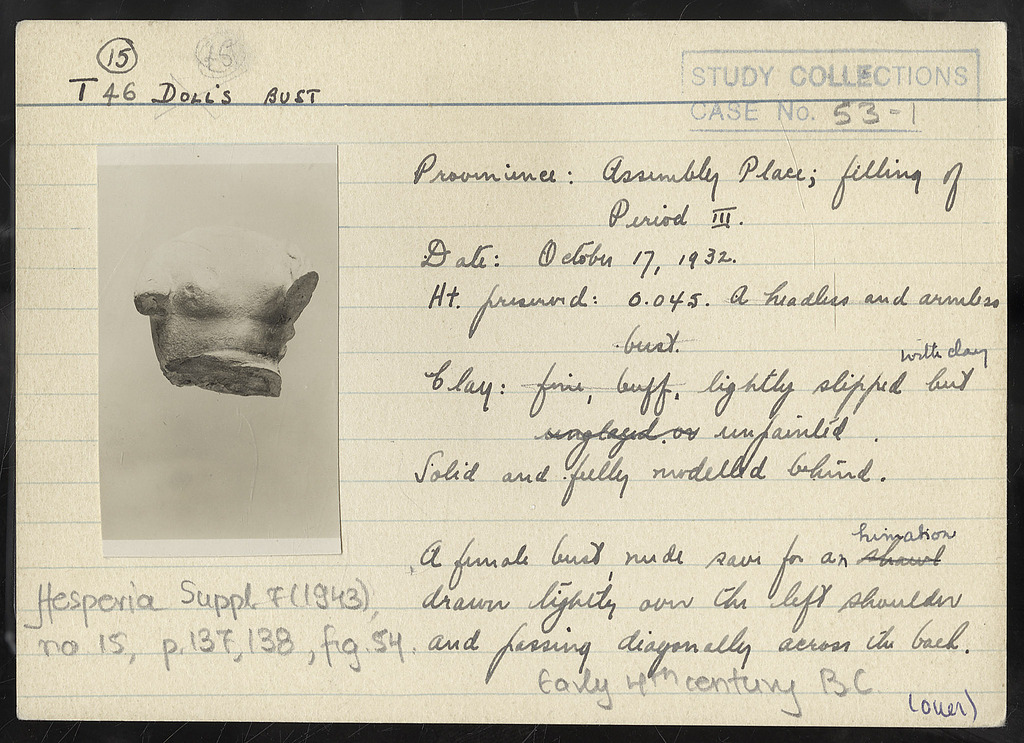 15
T 46 DOLL'S BUST
STUDY COLLECTIONS
CASE No. 53-1
Provenience: Assembly Place; filling of
Period III.
Date: October 17, 1932.
Ht. preserved: 0.045. A headless and armless
bust.
with clay
Clay: fine, buff, lightly slipped but
unglazed or unpainted.
Solid and fully modelled behind.
himation
A female bust, nude save for an shawl
drawn lightly over the left shoulder
and passing diagonally across the back.
Hesperia Suppl. 7 (1943),
no 15, p. 137, 138, fig. 54.
Early 4th century B.C
(over)